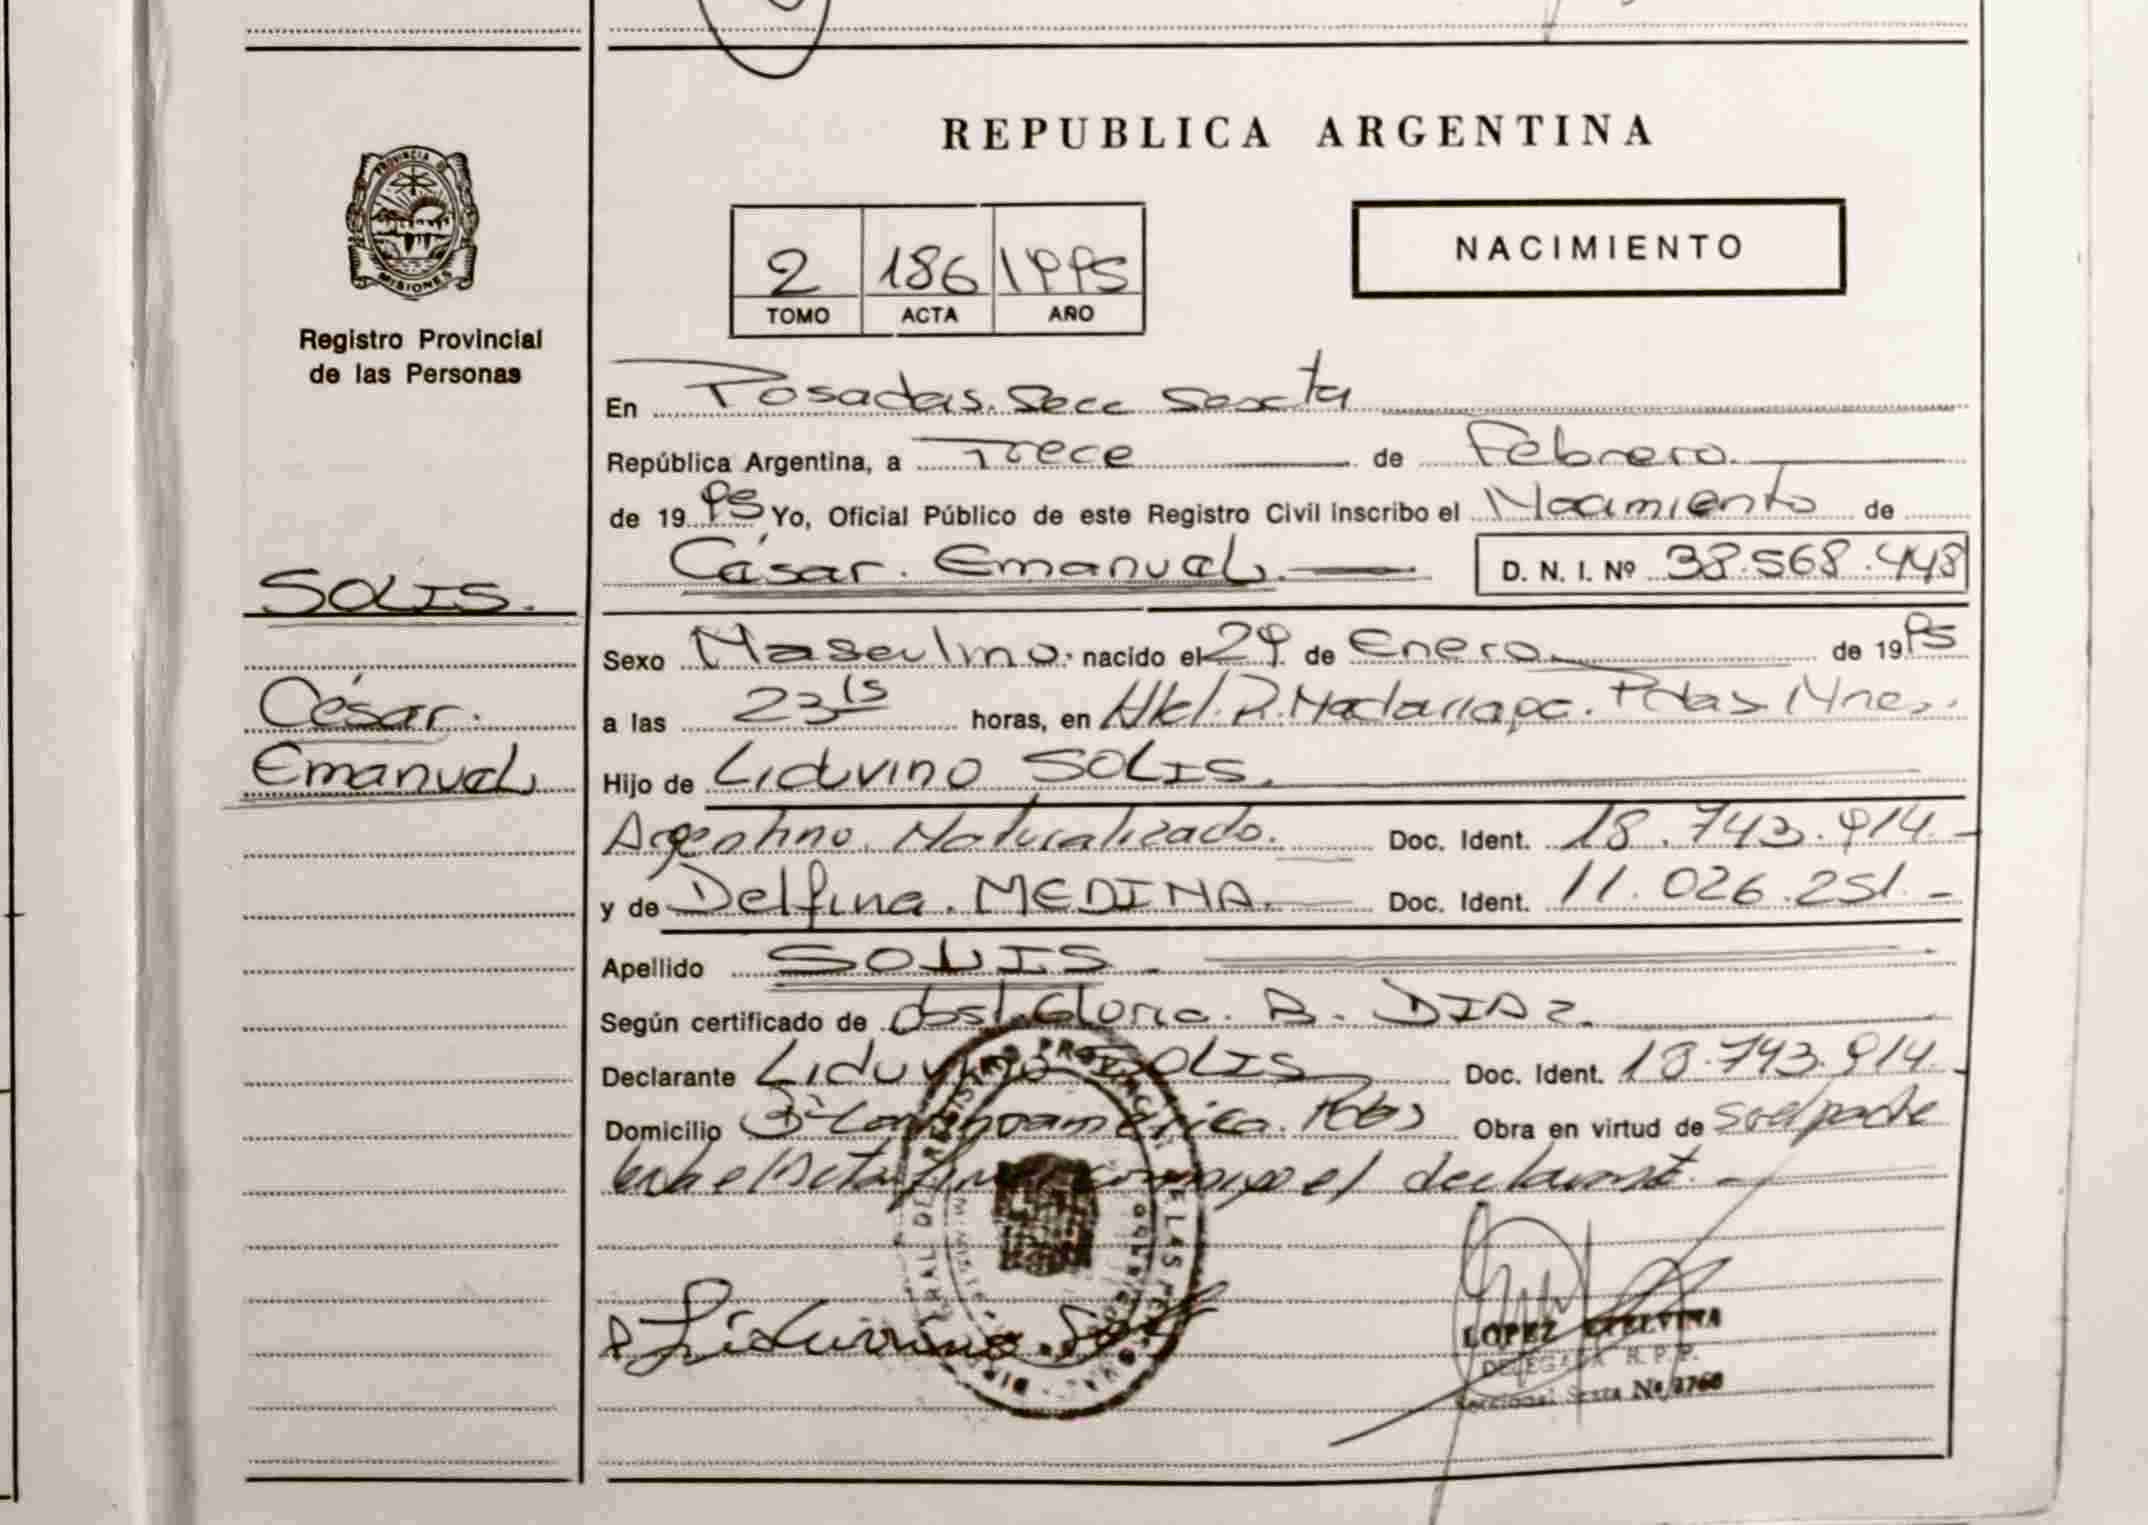 PROVINCIA DE
MISIONES
Registro Provincial
de las Personas
SOLIS.
César.
Emanuel
REPUBLICA ARGENTINA
2 186 1995
TOMO ACTA AÑO
NACIMIENTO
En Posadas. Secc Sexta
República Argentina, a Trece de Febrero.
de 1995 Yo, Oficial Público de este Registro Civil inscribo el Nacimiento de
César. Emanuel. D. N. I. Nº 38.568.448
Sexo Masculino. nacido el 29 de Enero. de 1995
a las 23 15 horas, en R. Madariaga. Pdas Mnes.
Hijo de Liduvino SOLIS.
Argentino. Naturalizado. Doc. Ident. 18.743.914.-
y de Delfina. MEDINA. Doc. Ident. 11.026.251.-
Apellido SOLIS.
Según certificado de Obst. Gloria. B. DIAZ.
Declarante Liduvino SOLIS Doc. Ident. 18.743.914.-
Domicilio Latinoamérica. Obra en virtud de
el Acta firma conmigo el declarante.-
REGISTRO PROVINCIAL DE LAS PERSONAS
Liduvino. Solis
LOPEZ ETELVINA
DELEGADA R. P. P.
Seccional Sexta Nº 3760